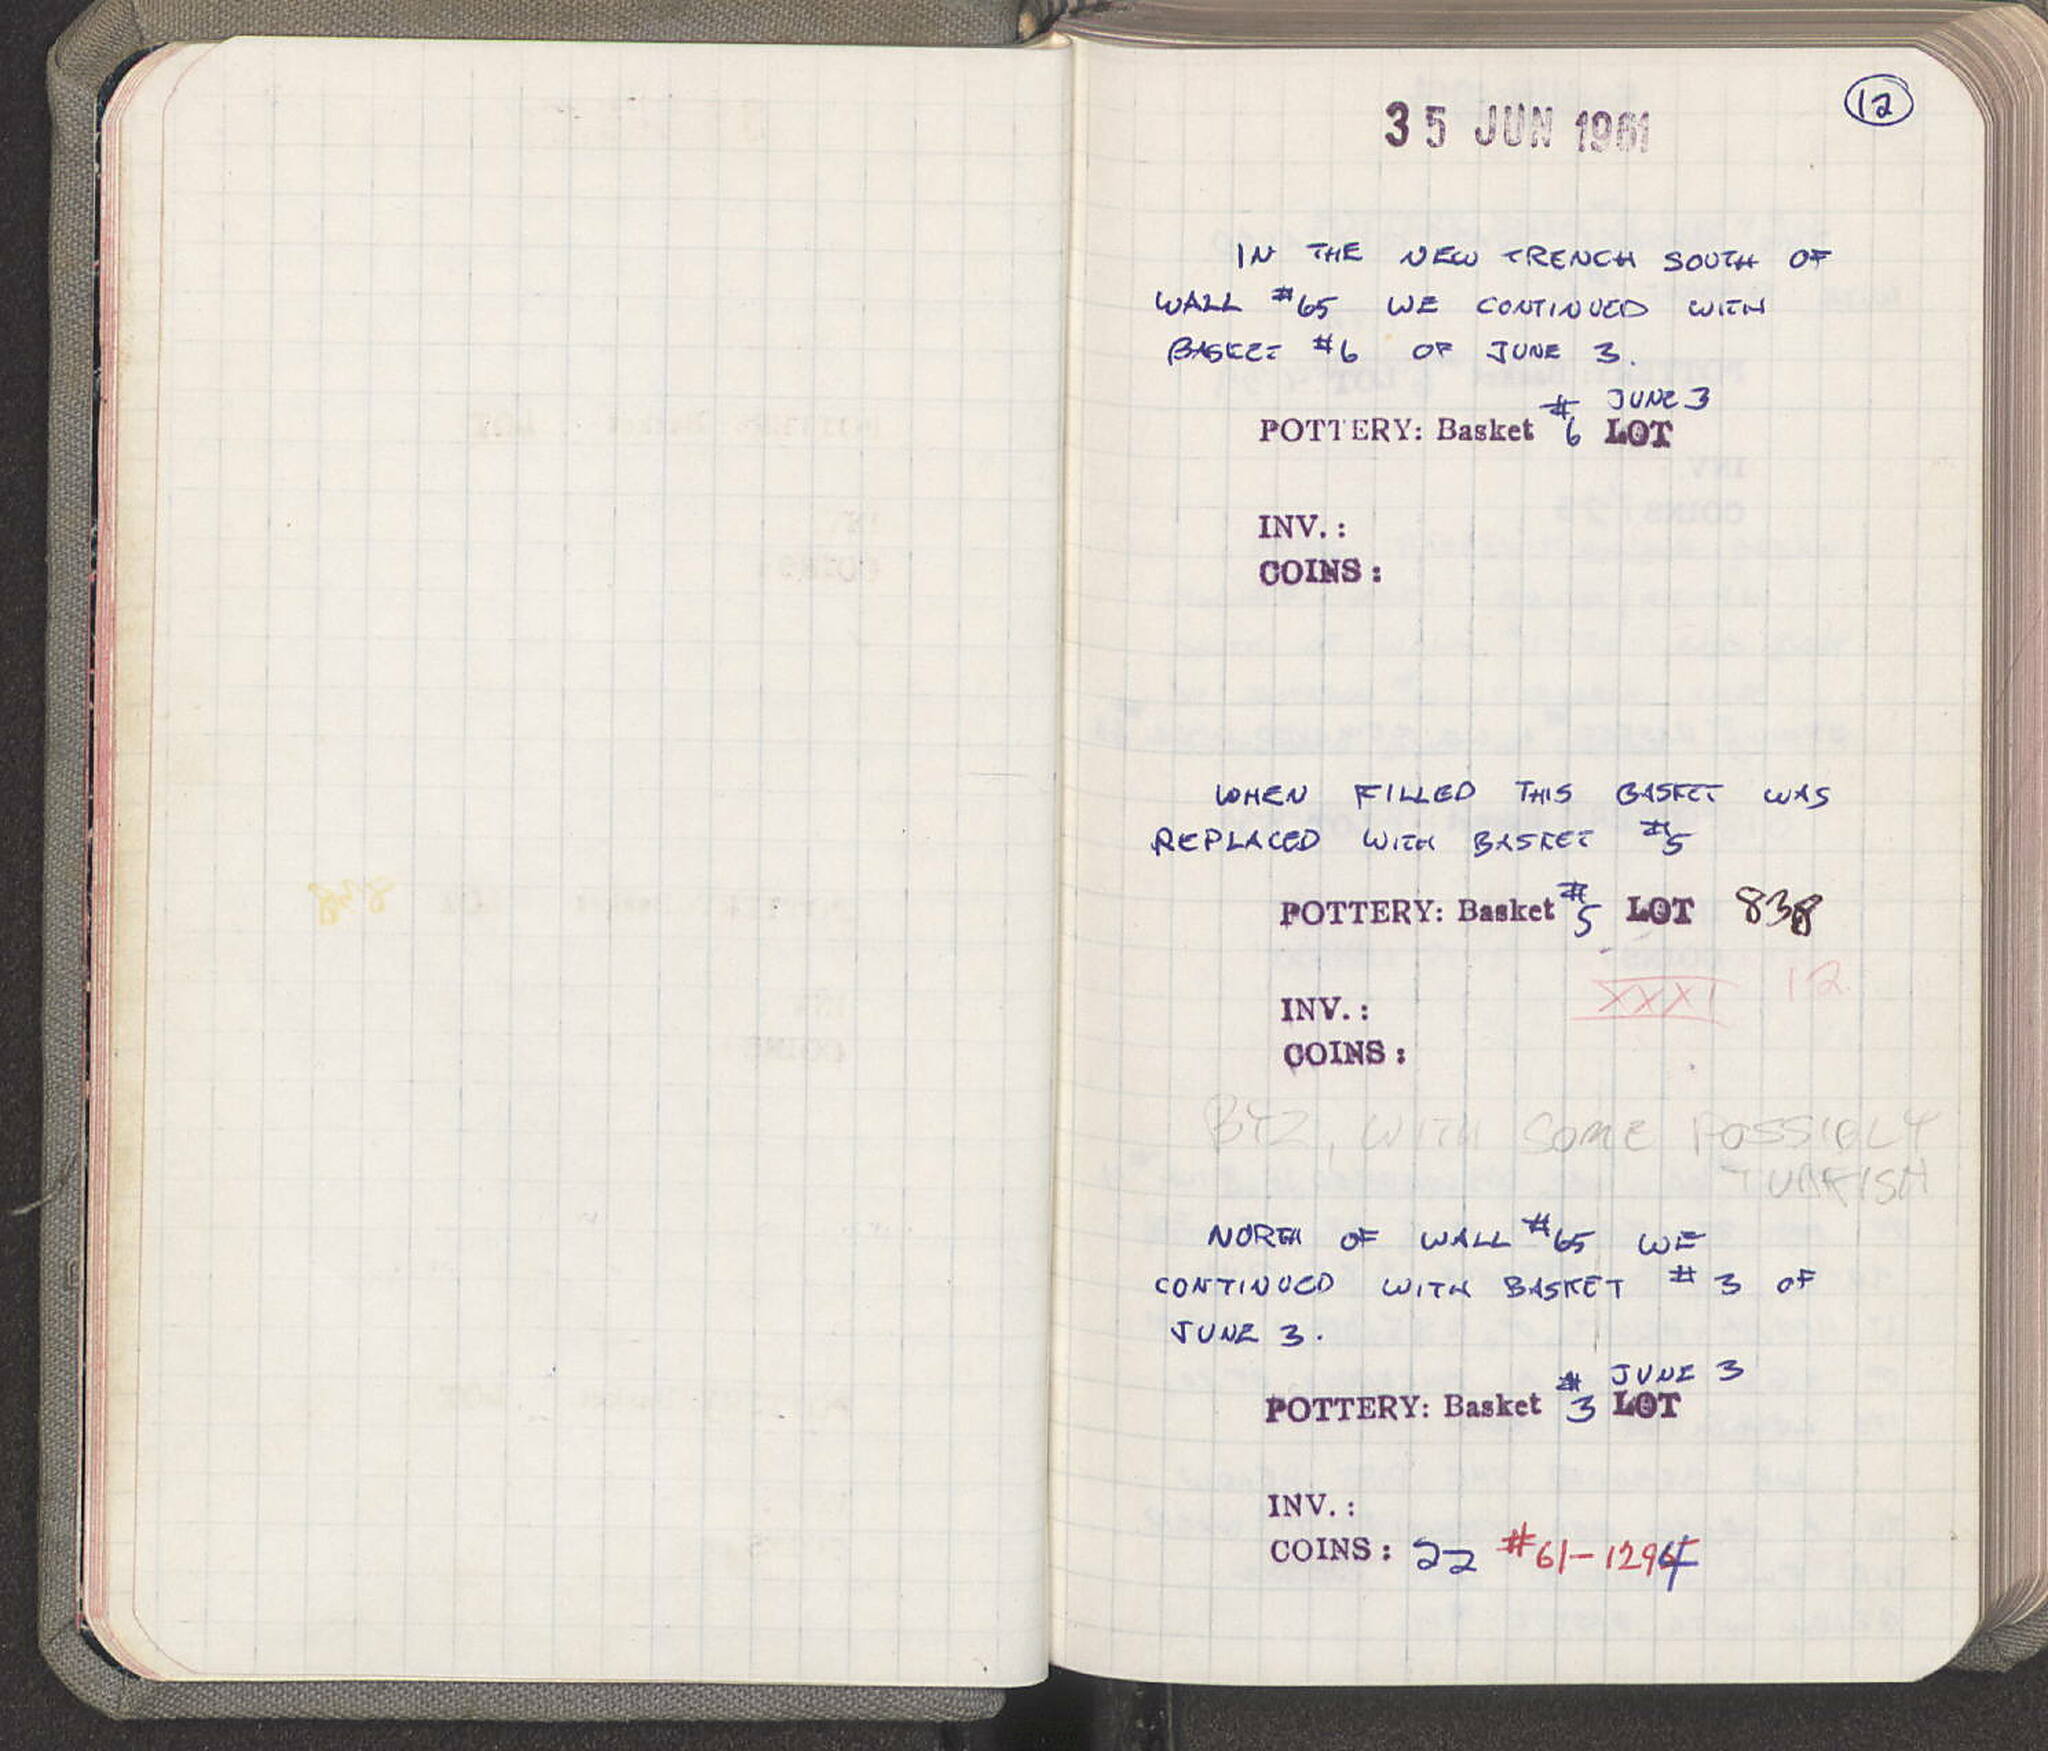 12
35 JUN 1961
IN THE NEW TRENCH SOUTH OF
WALL #65 WE CONTINUED WITH
BASKET #6 OF JUNE 3.
JUNE 3
POTTERY: Basket #6 LOT
INV.:
COINS:
WHEN FILLED THIS BASKET WAS
REPLACED WITH BASKET #5
POTTERY: Basket #5 LOT 838
XXXI 12
INV.:
COINS:
BYZ, WITH SOME POSSIBLY
TURKISH
NORTH OF WALL #65 WE
CONTINUED WITH BASKET #3 OF
JUNE 3.
JUNE 3
POTTERY: Basket #3 LOT
INV.:
COINS: 22 #61-1294